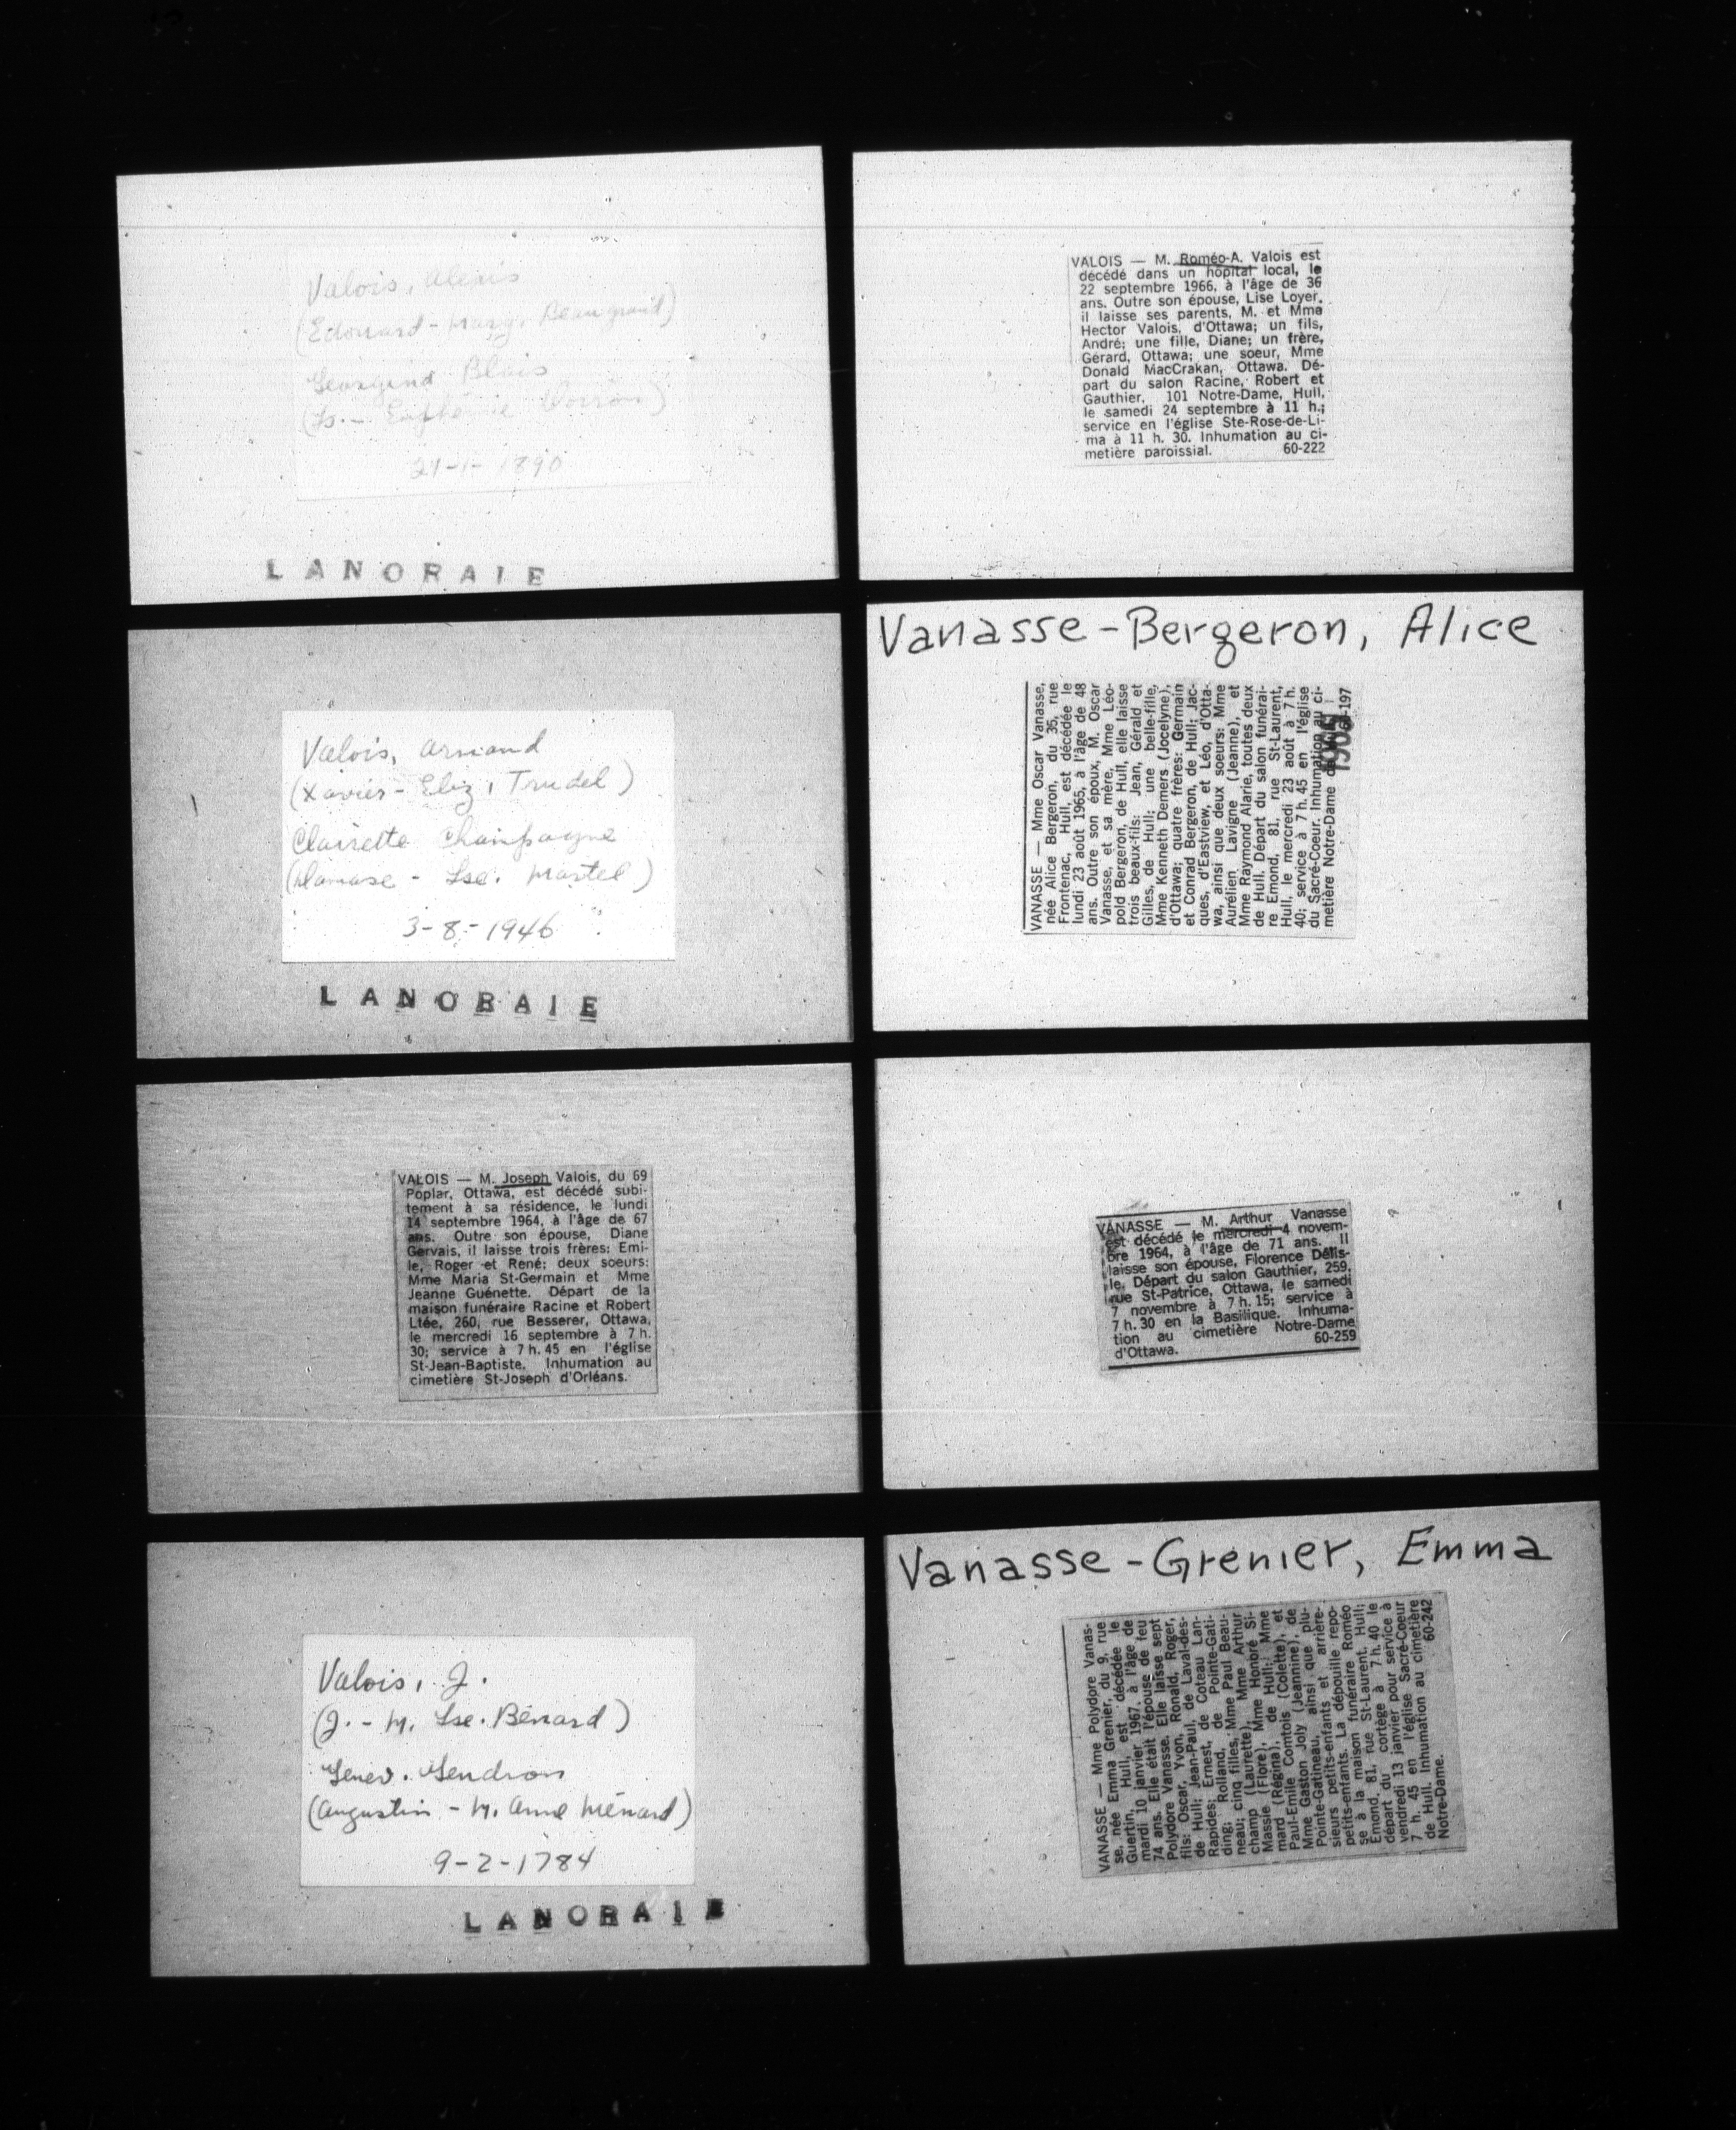 Valois, Alexis
(Edouard - Marg. Beaugrand)
Georgina Blais
(
21-1-1890
LANORAIE
Valois, Armand
(Xavier - Eliz. Trudel)
Clairette Champagne
(Damase - Lse. Martel)
3-8-1946
LANORAIE
VALOIS — M. Joseph Valois, du 69
Poplar, Ottawa, est décédé subi-
tement à sa résidence, le lundi
14 septembre 1964, à l'âge de 67
ans. Outre son épouse, Diane
Gervais, il laisse trois frères: Emi-
le, Roger et René; deux soeurs:
Mme Maria St-Germain et Mme
Jeanne Guénette. Départ de la
maison funéraire Racine et Robert
Ltée, 260, rue Besserer, Ottawa,
le mercredi 16 septembre à 7 h.
30; service à 7 h. 45 en l'église
St-Jean-Baptiste. Inhumation au
cimetière St-Joseph d'Orléans.
Valois, J.
(J. - M. Lse. Bénard)
Genev. Gendron
(Augustin - M. Anne Ménard)
9-2-1784
LANORAIE
VALOIS — M. Roméo-A. Valois est
décédé dans un hôpital local, le
22 septembre 1966, à l'âge de 36
ans. Outre son épouse, Lise Loyer,
il laisse ses parents, M. et Mme
Hector Valois, d'Ottawa; un fils,
André; une fille, Diane; un frère,
Gérard, Ottawa; une soeur, Mme
Donald MacCrakan, Ottawa. Dé-
part du salon Racine, Robert et
Gauthier, 101 Notre-Dame, Hull,
le samedi 24 septembre à 11 h.;
service en l'église Ste-Rose-de-Li-
ma à 11 h. 30. Inhumation au ci-
metière paroissial. 60-222
Vanasse-Bergeron, Alice
VANASSE — Mme Oscar Vanasse,
née Alice Bergeron, du 35, rue
Frontenac, Hull, est décédée le
lundi 23 août 1965, à l'âge de 48
ans. Outre son époux, M. Oscar
Vanasse, et sa mère, Mme Léo-
pold Bergeron, de Hull, elle laisse
trois beaux-fils: Jean, Gérald et
Gilles, de Hull; une belle-fille,
Mme Kenneth Demers (Jocelyne),
d'Ottawa; quatre frères: Germain
et Conrad Bergeron, de Hull; Jac-
ques, d'Eastview, et Léo, d'Otta-
wa, ainsi que deux soeurs: Mme
Aurélien Lavigne (Jeanne), et
Mme Raymond Alarie, toutes deux
de Hull. Départ du salon funérai-
re Emond, 81, rue St-Laurent,
Hull, le mercredi 23 août à 7 h.
40; service à 7 h. 45 en l'église
du Sacré-Coeur. Inhumation au ci-
metière Notre-Dame -197
1965
VANASSE — M. Arthur Vanasse
est décédé le mercredi 4 novem-
bre 1964, à l'âge de 71 ans. Il
laisse son épouse, Florence Delis-
le. Départ du salon Gauthier, 259,
rue St-Patrice, Ottawa, le samedi
7 novembre à 7 h. 15; service à
7 h. 30 en la Basilique. Inhuma-
tion au cimetière Notre-Dame
d'Ottawa. 60-259
Vanasse-Grenier, Emma
VANASSE — Mme Polydore Vanas-
se, née Emma Grenier, du 9, rue
Guertin, Hull, est décédée le
mardi 10 janvier 1967, à l'âge de
74 ans. Elle était l'épouse de feu
Polydore Vanasse. Elle laisse sept
fils: Oscar, Yvon, Ronald, Roger,
de Hull; Jean-Paul, de Laval-des-
Rapides; Ernest, de Coteau Lan-
ding; Rolland, de Pointe-Gati-
neau; cinq filles, Mme Paul Beau-
champ (Laurette), Mme Arthur
Massie (Flore), Mme Honoré Si-
mard (Régina), de Hull; Mme
Paul-Emile Comtois (Colette), et
Mme Gaston Joly (Jeannine), de
Pointe-Gatineau, ainsi que plu-
sieurs petits-enfants et arrière-
petits-enfants. La dépouille repo-
se à la maison funéraire Roméo
Emond, 81, rue St-Laurent, Hull;
départ du cortège à 7 h. 40 le
vendredi 13 janvier pour service à
7 h. 45 en l'église Sacré-Coeur
de Hull. Inhumation au cimetière
Notre-Dame. 60-242